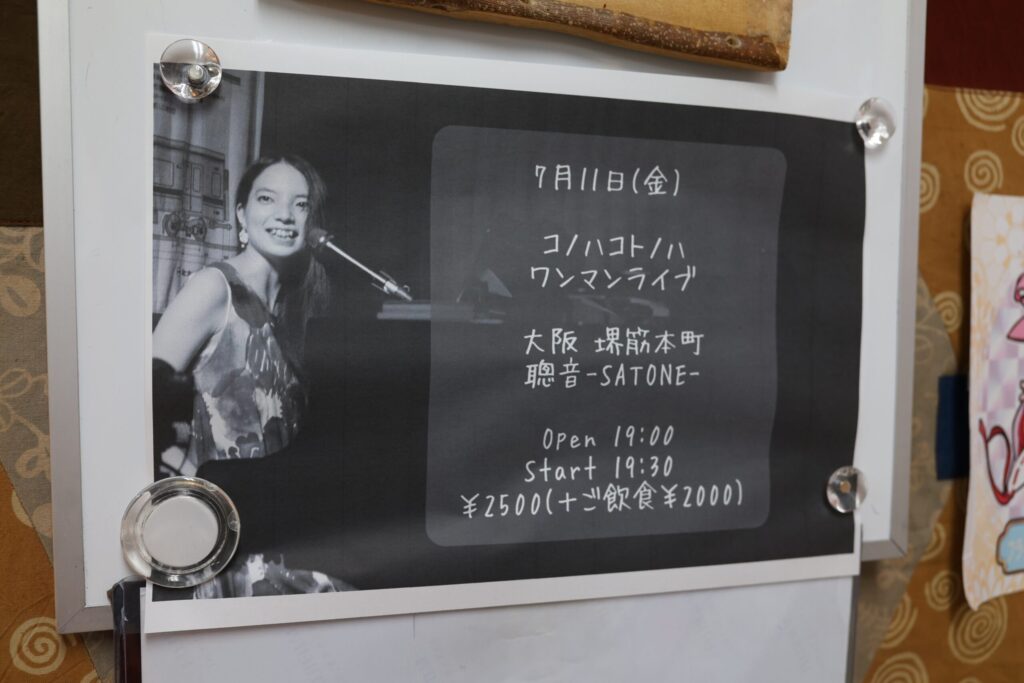 7月11日(金)
コノハコトノハ
ワンマンライブ
大阪 堺筋本町
聰音-SATONE-
Open 19:00
Start 19:30
¥2500(+ご飲食¥2000)